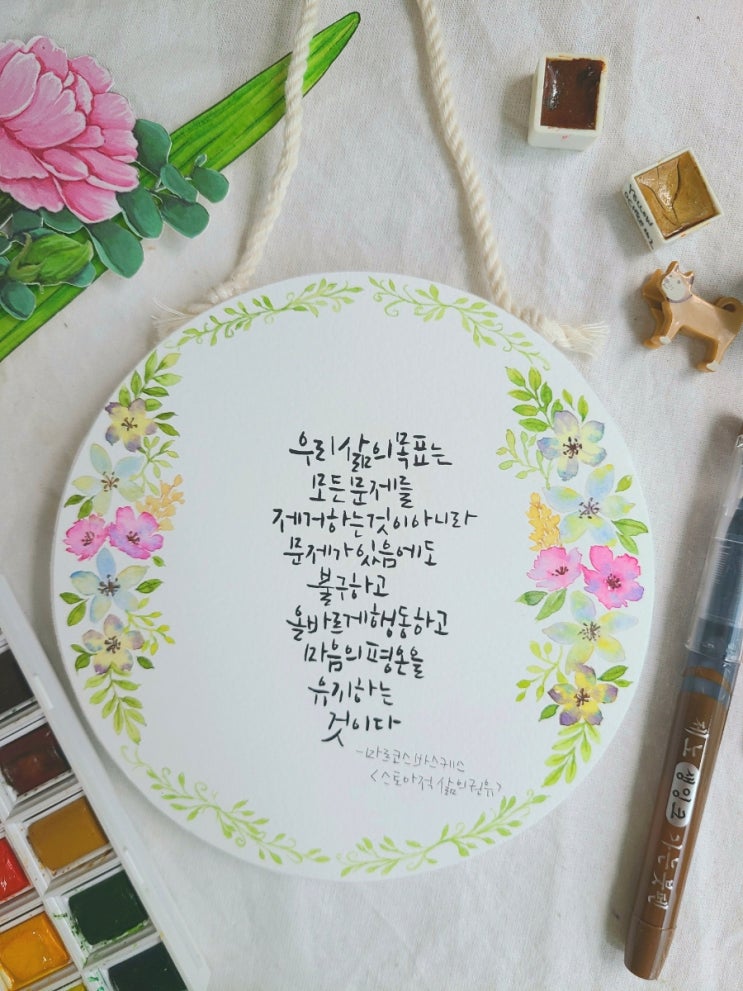 우리 삶의 목표는
모든 문제를
제거하는 것이 아니라
문제가 있음에도
불구하고
올바르게 행동하고
마음의 평온을
유지하는
것이다
-마르코스 바스케스
<스토아적 삶의 권유>
제노 생잉크 가는 붓펜